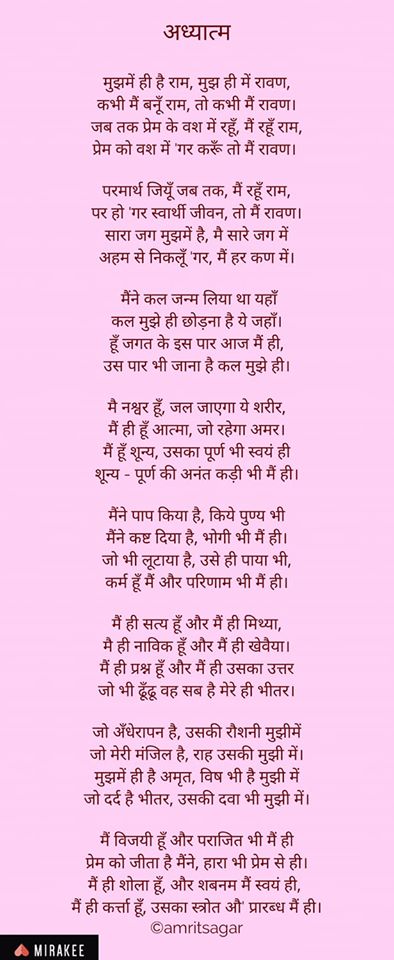 अध्यात्म
मुझमें ही है राम, मुझ ही में रावण,
कभी मैं बनूँ राम, तो कभी मैं रावण।
जब तक प्रेम के वश में रहूँ, मैं रहूँ राम,
प्रेम को वश में 'गर करूँ तो मैं रावण।
परमार्थ जियूँ जब तक, मैं रहूँ राम,
पर हो 'गर स्वार्थी जीवन, तो मैं रावण।
सारा जग मुझमें है, मै सारे जग में
अहम से निकलूँ 'गर, मैं हर कण में।
मैंने कल जन्म लिया था यहाँ
कल मुझे ही छोड़ना है ये जहाँ।
हूँ जगत के इस पार आज मैं ही,
उस पार भी जाना है कल मुझे ही।
मै नश्वर हूँ, जल जाएगा ये शरीर,
मैं ही हूँ आत्मा, जो रहेगा अमर।
मैं हूँ शून्य, उसका पूर्ण भी स्वयं ही
शून्य - पूर्ण की अनंत कड़ी भी मैं ही।
मैंने पाप किया है, किये पुण्य भी
मैंने कष्ट दिया है, भोगी भी मैं ही।
जो भी लूटाया है, उसे ही पाया भी,
कर्म हूँ मैं और परिणाम भी मैं ही।
मैं ही सत्य हूँ और मैं ही मिथ्या,
मै ही नाविक हूँ और मैं ही खेवैया।
मैं ही प्रश्न हूँ और मैं ही उसका उत्तर
जो भी ढूँढू वह सब है मेरे ही भीतर।
जो अँधेरापन है, उसकी रौशनी मुझीमें
जो मेरी मंजिल है, राह उसकी मुझी में।
मुझमें ही है अमृत, विष भी है मुझी में
जो दर्द है भीतर, उसकी दवा भी मुझी में।
मैं विजयी हूँ और पराजित भी मैं ही
प्रेम को जीता है मैंने, हारा भी प्रेम से ही।
मैं ही शोला हूँ, और शबनम मैं स्वयं ही,
मैं ही कर्त्ता हूँ, उसका स्त्रोत औ' प्रारब्ध मैं ही।
©amritsagar
MIRAKEE